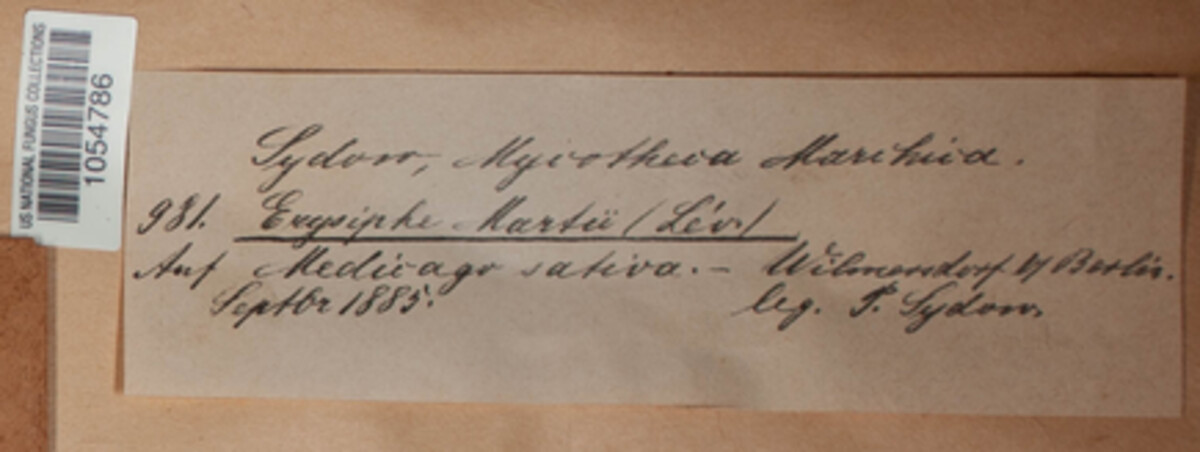 US NATIONAL FUNGUS COLLECTIONS
1054786
Sydow, Mycotheca Marchica.
981. Erysiphe Martii (Lév.)
Auf Medicago sativa. – Wilmersdorf b/ Berlin.
Septbr 1885. leg. P. Sydow.